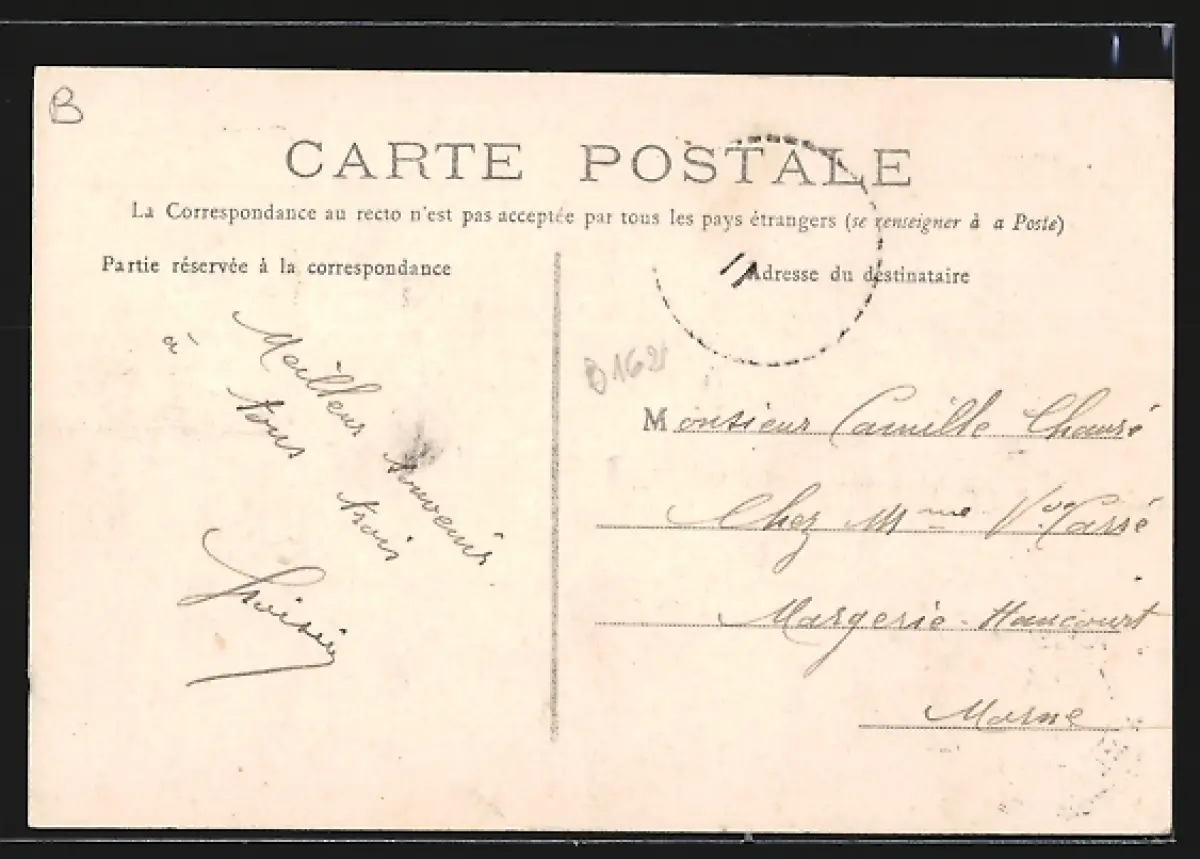 B
CARTE POSTALE
La Correspondance au recto n'est pas acceptée par tous les pays étrangers (se renseigner à a Poste)
Partie réservée à la correspondance
Meilleurs souvenirs
à tous trois
Adresse du destinataire
B162
Monsieur Camille
Chez Mme Vve
Margerie-Hancourt
Marne